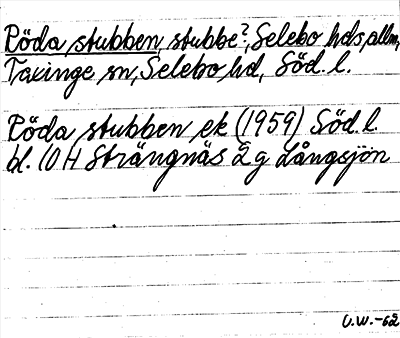 Röda stubben, stubbe?, Selebo hds allm,
Taxinge sn, Selebo hd, Söd. l.
Röda stubben ek (1959) Söd. l.
bl. 10 H Strängnäs 2 g Långsjön
U.W.-62